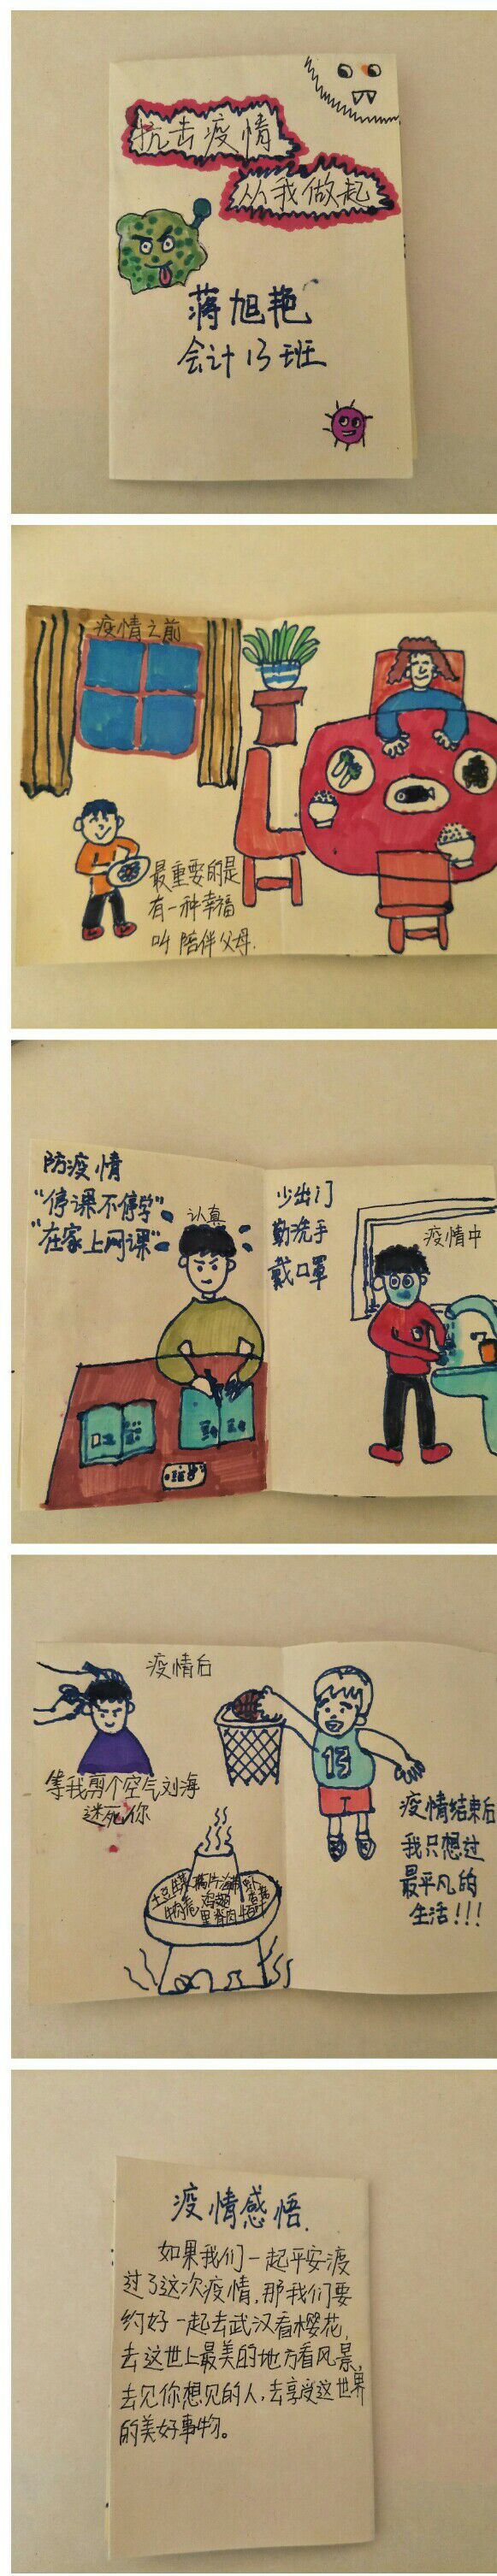 抗击疫情
从我做起
蒋旭艳
会计13班
疫情之前
最重要的是
有一种幸福
叫陪伴父母.
防疫情
"停课不停学"
"在家上网课"
认真
少出门
勤洗手
戴口罩
疫情中
疫情后
等我剪个空气刘海
迷死你
13
疫情结束后
我只想过
最平凡的
生活!!!
疫情感悟.
如果我们一起平安渡
过了这次疫情,那我们要
约好一起去武汉看樱花,
去这世上最美的地方看风景,
去见你想见的人,去享受这世界
的美好事物。